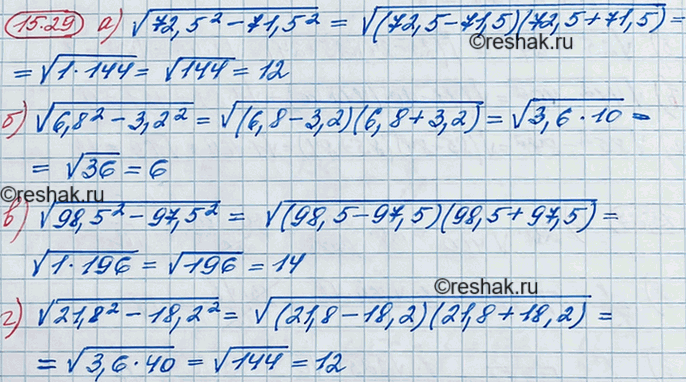 15.29 а) √(72,5² − 71,5²) = √((72,5−71,5)(72,5+71,5)) =
©reshak.ru
= √(1·144) = √144 = 12
б) √(6,8² − 3,2²) = √((6,8−3,2)(6,8+3,2)) = √(3,6·10) =
= √36 = 6
©reshak.ru
в) √(98,5² − 97,5²) = √((98,5−97,5)(98,5+97,5)) =
√(1·196) = √196 = 14
©reshak.ru
г) √(21,8² − 18,2²) = √((21,8−18,2)(21,8+18,2)) =
= √(3,6·40) = √144 = 12